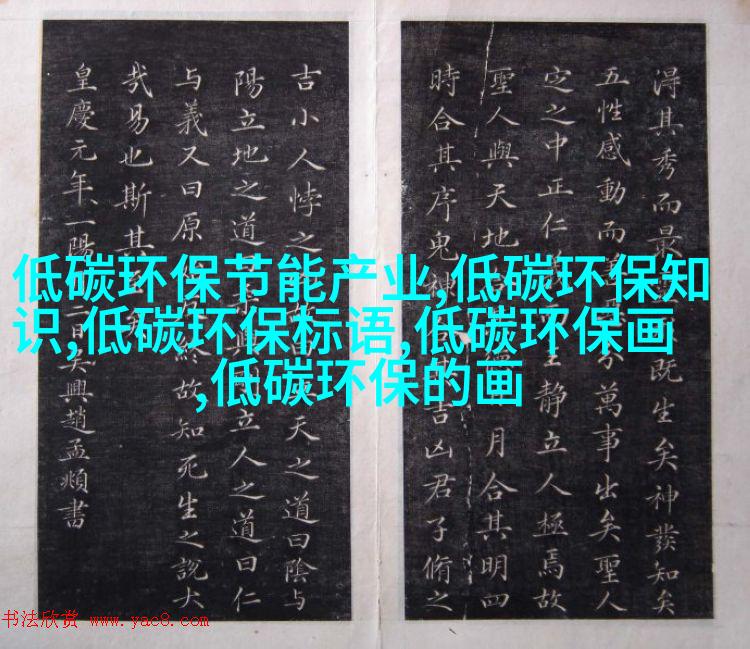 得其秀而最既生矣神發知矣
五性感動而分萬事出矣聖人
定之中正仁主静立人極焉故
聖人與天地月合其明四
時合其序鬼神吉凶君子脩之
吉小人悖之天之道曰陰与
陽立地之道立人之道曰仁
与義又曰原終故知死生之說大
哉易也斯其
皇慶元年一陽二日吳興趙孟頫書
低碳环保节能产业,低碳环保知
识,低碳环保标语,低碳环保画
,低碳环保的画
书法欣赏 www.yac8.com